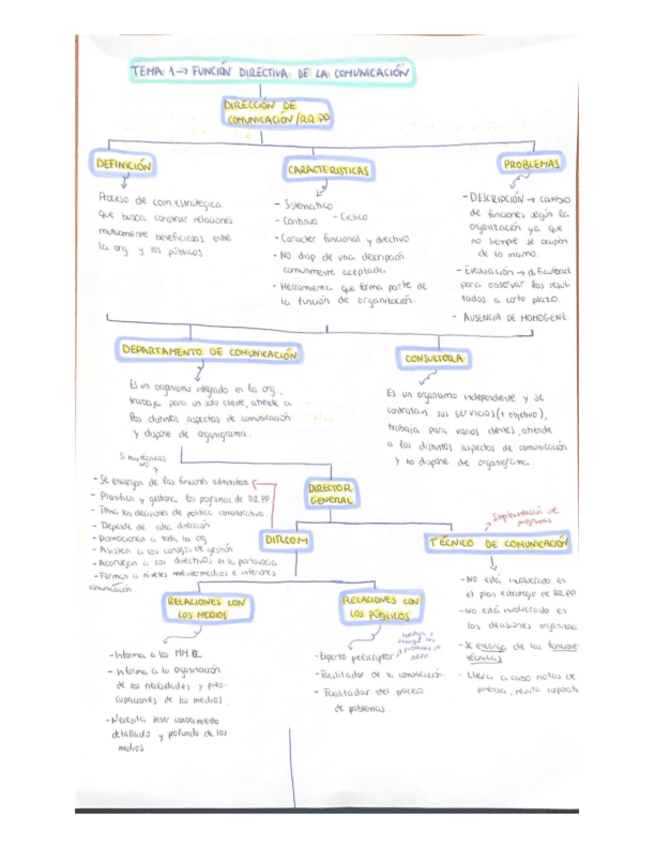 TEMA 1 → FUNCIÓN DIRECTIVA DE LA COMUNICACIÓN
DIRECCIÓN DE
COMUNICACIÓN/RR PP
DEFINICIÓN
Proceso de com estratégica
que busca construir relaciones
mutuamente beneficiosas entre
la org y los públicos.
CARACTERISTICAS
- Sistemático
- Continuo - Cíclico
- Caracter funcional y directivo
- No disp de una descripción
comunmente aceptada
- Herramienta que forma parte de
la función de organización.
PROBLEMAS
- DESCRIPCIÓN → cambio
de funciones según la
organización ya que
no siempre se ocupan
de lo mismo.
- Evaluación → dificultad
para observar los resul-
tados a corto plazo.
- AUSENCIA DE HOMOGENE.
DEPARTAMENTO DE COMUNICACIÓN
Es un organismo integrado en la org.,
trabaja para un solo cliente, atiende a
los distintos aspectos de comunicación
y dispone de organigrama.
CONSULTORA
Es un organismo independiente y se
contratan sus servicios (+ objetivo),
trabaja para varios clientes, atiende
a los distintos aspectos de comunicación
y no dispone de organigrama.
DIRECTOR
GENERAL
Si hay técnicos
NO
- Se encargan de las funciones administ
- Planifica y gestiona los programas de RR.PP
- Toma las decisiones de política comunicativa
- Depende de alta dirección
- a toda la org
- Asisten a los consejos de gestión
- Aconsejan a los directivos en la portavocía
- Forman a niveles intermedios e inferiores
comunicación.
DIRCOM
TÉCNICO DE COMUNICACIÓN
Implementación de
programas
- No está involucrado en
el plan estratégico de RR.PP
- No está involucrado en
las decisiones organiza
- Se encarga de las funcione
técnicas
- Lleva a cabo notas de
prensa, revista corporati
RELACIONES CON
LOS MEDIOS
- Informa a los MM
- Informa a la organización
de las necesidades y preo-
cupaciones de los medios.
- Necesita tener conocimiento
detallado y profundo de los
medios
RELACIONES CON
LOS PÚBLICOS
- Experto preescriptor
problemas de
RRPP
- Facilitador de la comunicación
- Facilitador del proceso
de problemas.